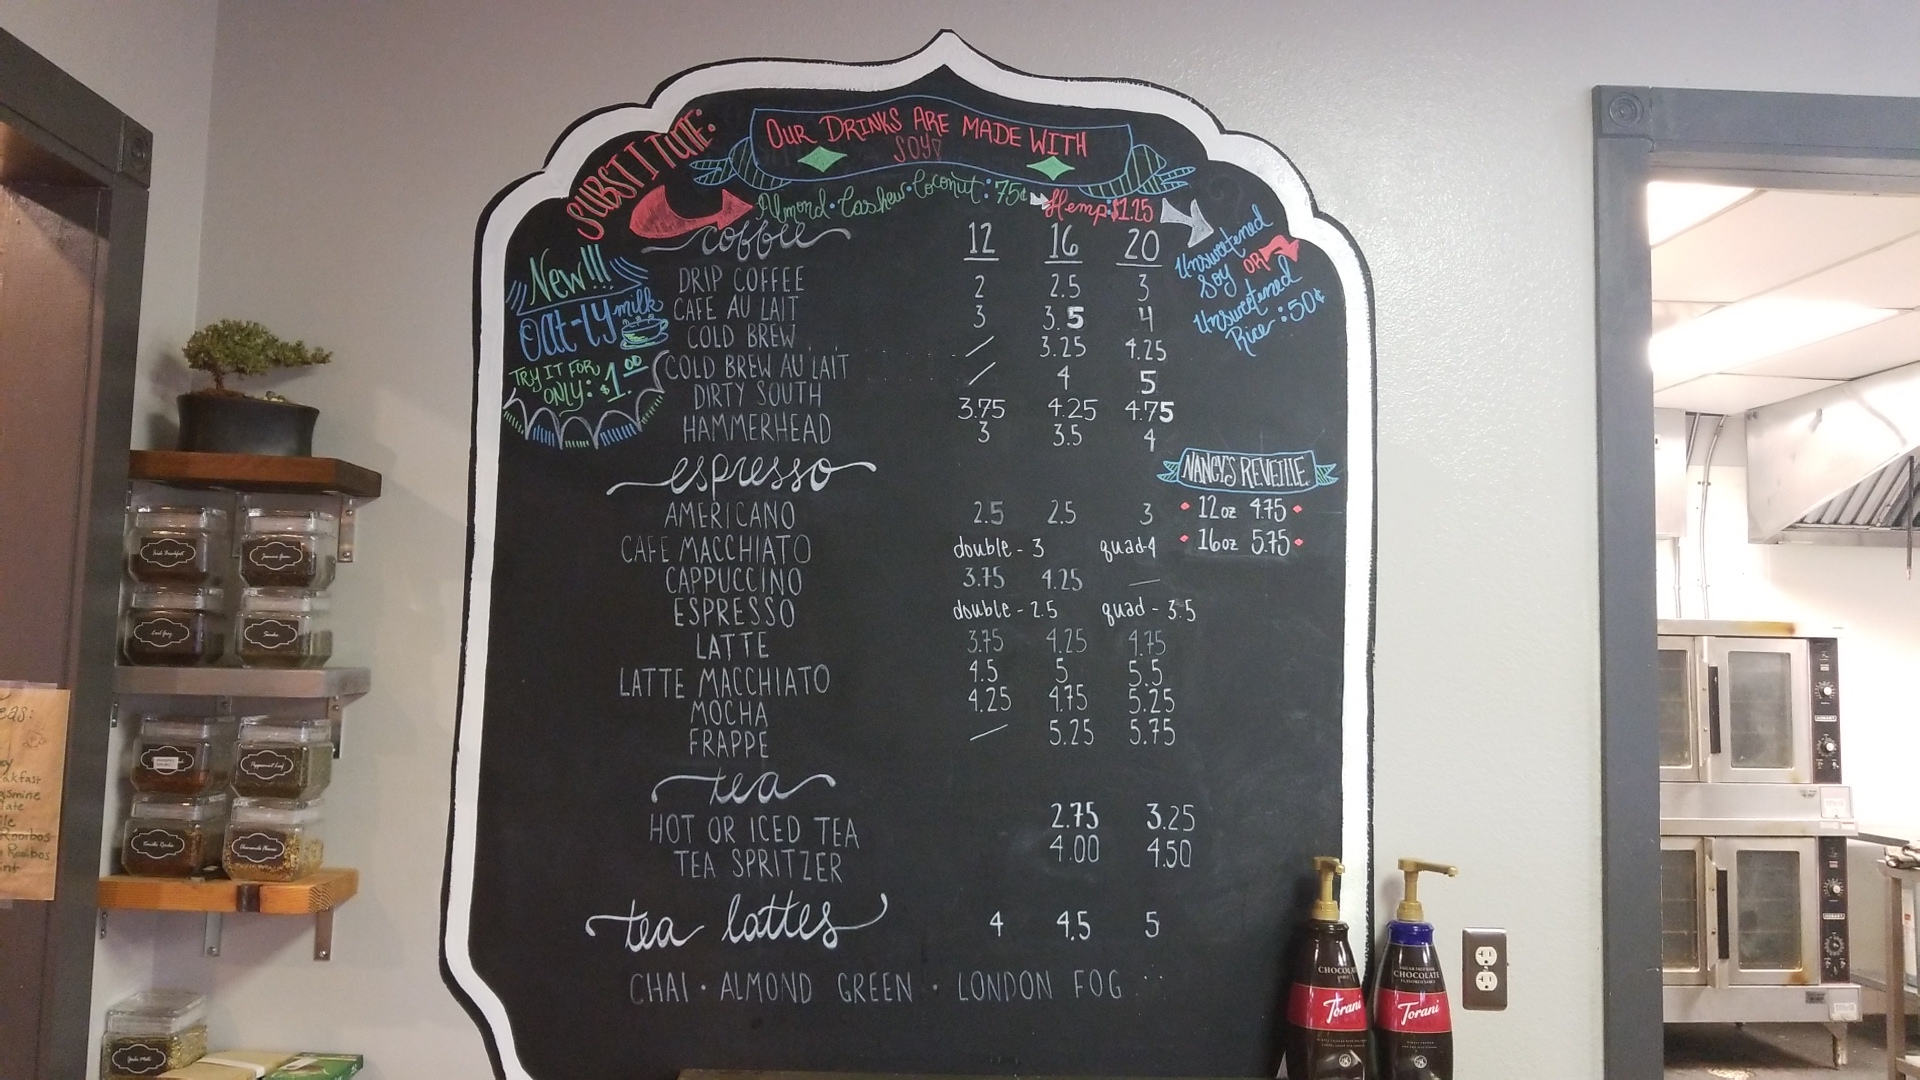 OUR DRINKS ARE MADE WITH
SOY
SUBSTITUTE:
Almond · Cashew · Coconut : 75¢
Hemp: $1.25
Unsweetened
Soy OR
Unsweetened
Rice : 50¢
New!!!
OAt-ly milk
TRY IT FOR
ONLY: $1.00
coffee 12 16 20
DRIP COFFEE 2 2.5 3
CAFE AU LAIT 3 3.5 4
COLD BREW / 3.25 4.25
COLD BREW AU LAIT / 4 5
DIRTY SOUTH 3.75 4.25 4.75
HAMMERHEAD 3 3.5 4
espresso
AMERICANO 2.5 2.5 3
CAFE MACCHIATO double - 3 quad-4
CAPPUCCINO 3.75 4.25 —
ESPRESSO double - 2.5 quad - 3.5
LATTE 3.75 4.25 4.75
LATTE MACCHIATO 4.5 5 5.5
MOCHA 4.25 4.75 5.25
FRAPPE / 5.25 5.75
NANCY'S REVEILLE
12oz 4.75
16oz 5.75
tea
HOT OR ICED TEA 2.75 3.25
TEA SPRITZER 4.00 4.50
tea lattes 4 4.5 5
CHAI · ALMOND GREEN · LONDON FOG
Irish Breakfast
Jasmine Green
Earl Grey
Sencha
Peppermint Leaf
Vanilla Rooibos
eas:
akfast
asmine
Rooibos
Rooibos
CHOCOLATE
Torani
CHOCOLATE
Torani
HOBART
HOBART